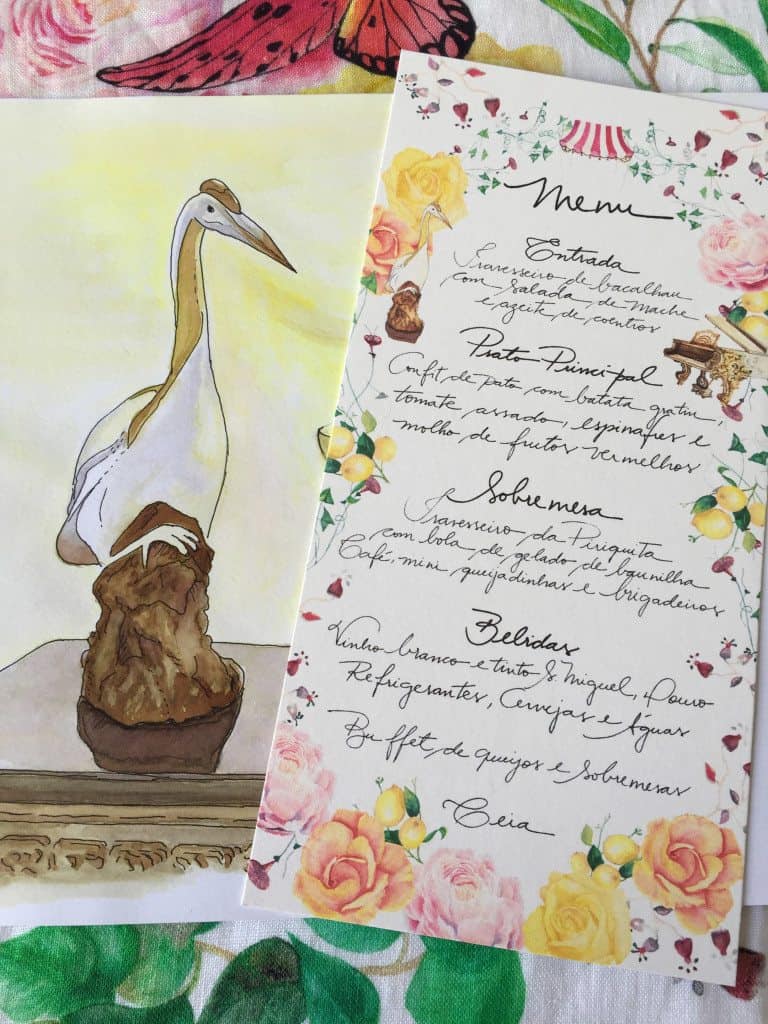 Menu
Entrada
Travesseiro de bacalhau
com salada de Mache
e azeite de coentros
Prato Principal
Confit de pato com batata gratin,
tomate assado, espinafres e
molho de frutos vermelhos
Sobremesa
Travesseiro da Piriquita
com bola de gelado de baunilha
Café, mini queijadinhas e brigadeiros
Bebidas
Vinho branco e tinto S. Miguel, Douro
Refrigerantes, Cervejas e Águas
Buffet de queijos e sobremesas
Ceia